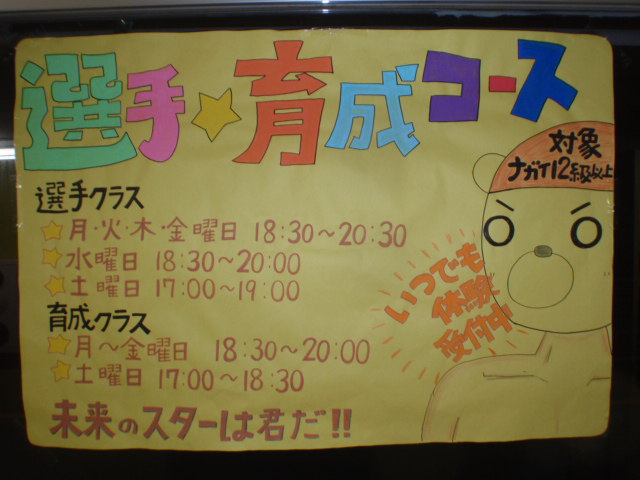 選手☆育成コース
対象
ナガイ12級以上
選手クラス
☆月・火・木・金曜日 18:30～20:30
☆水曜日 18:30～20:00
☆土曜日 17:00～19:00
育成クラス
☆月～金曜日 18:30～20:00
☆土曜日 17:00～18:30
いつでも
体験
受付中
未来のスターは君だ!!